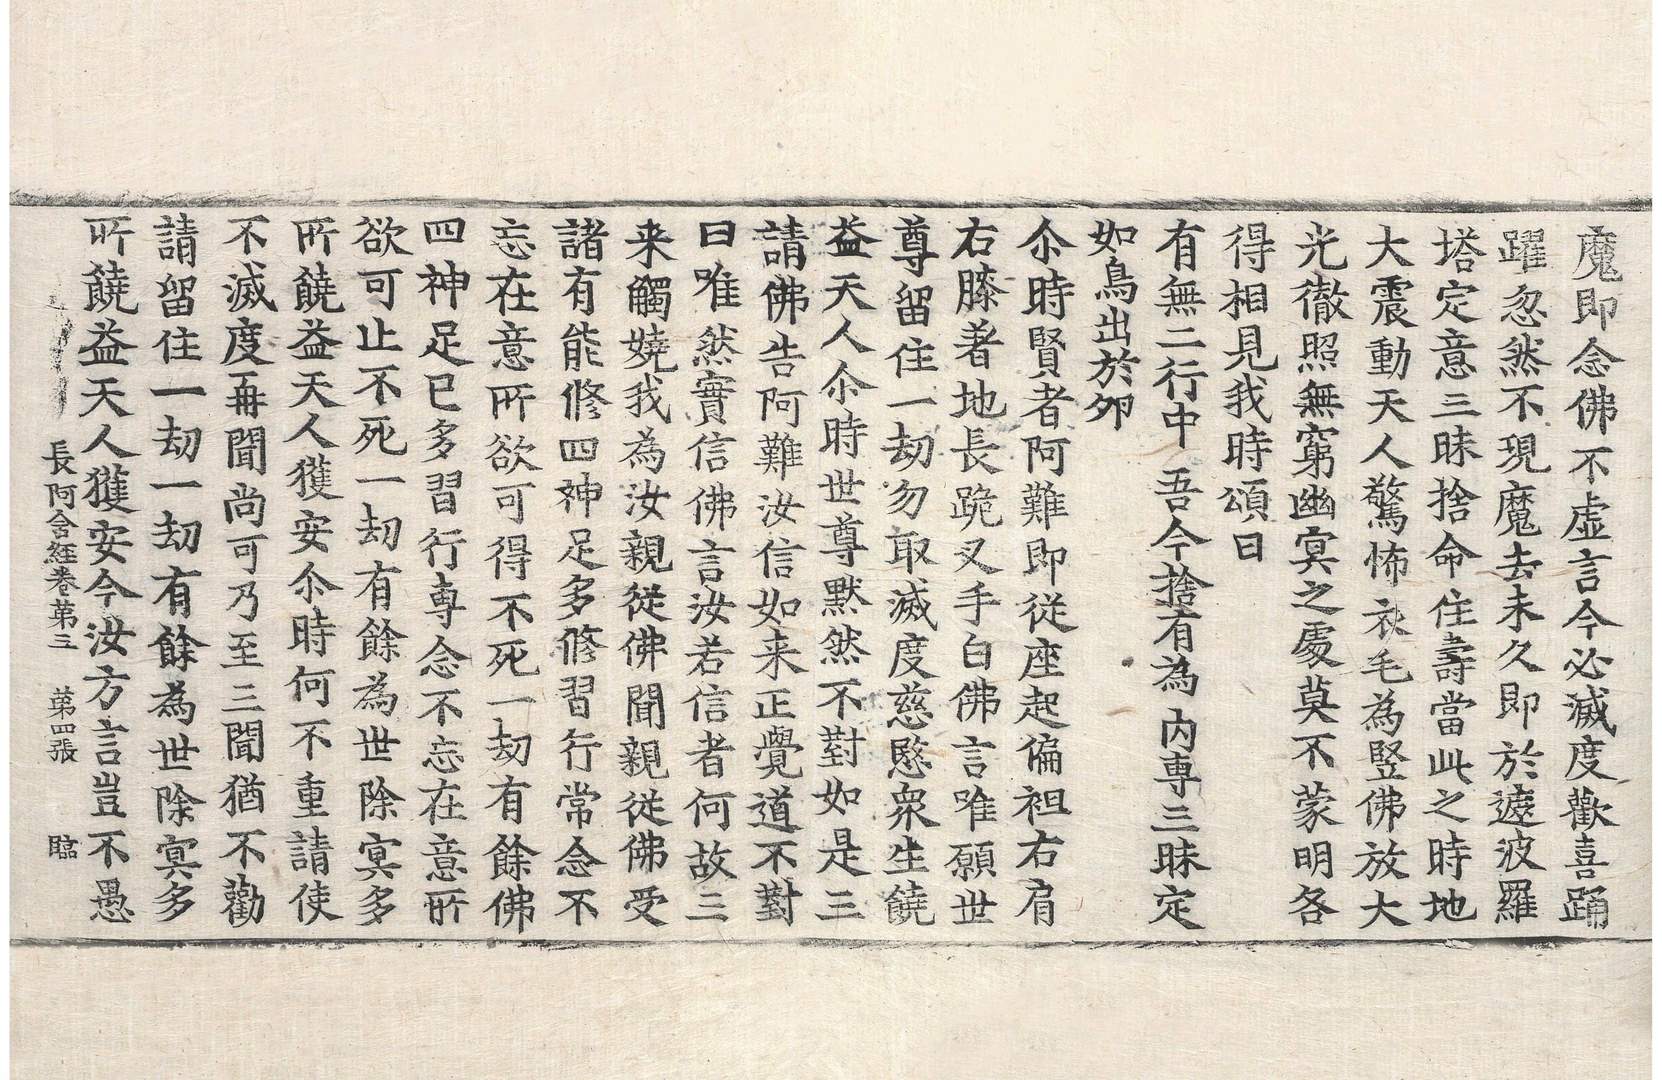 魔即念佛不虛言今必滅度歡喜踊
躍忽然不現魔去未久即於遮波羅
塔定意三昧捨命住壽當此之時地
大震動天人驚怖衣毛為竪佛放大
光徹照無窮幽冥之處莫不蒙明各
得相見我時頌曰
有無二行中 吾今捨有為 內専三昧定
如鳥出於卵
尒時賢者阿難即從座起偏袒右肩
右膝著地長跪叉手白佛言唯願世
尊留住一劫勿取滅度慈愍衆生饒
益天人尒時世尊默然不對如是三
請佛告阿難汝信如来正覺道不對
曰唯然實信佛言汝若信者何故三
来觸嬈我為汝親從佛聞親從佛受
諸有能修四神足多修習行常念不
忘在意所欲可得不死一劫有餘佛
四神足已多習行専念不忘在意所
欲可止不死一劫有餘為世除冥多
所饒益天人獲安尒時何不重請使
不滅度再聞尚可乃至三聞猶不勸
請留住一劫一劫有餘為世除冥多
所饒益天人獲安今汝方言豈不愚
長阿含経卷第三 第四張 臨